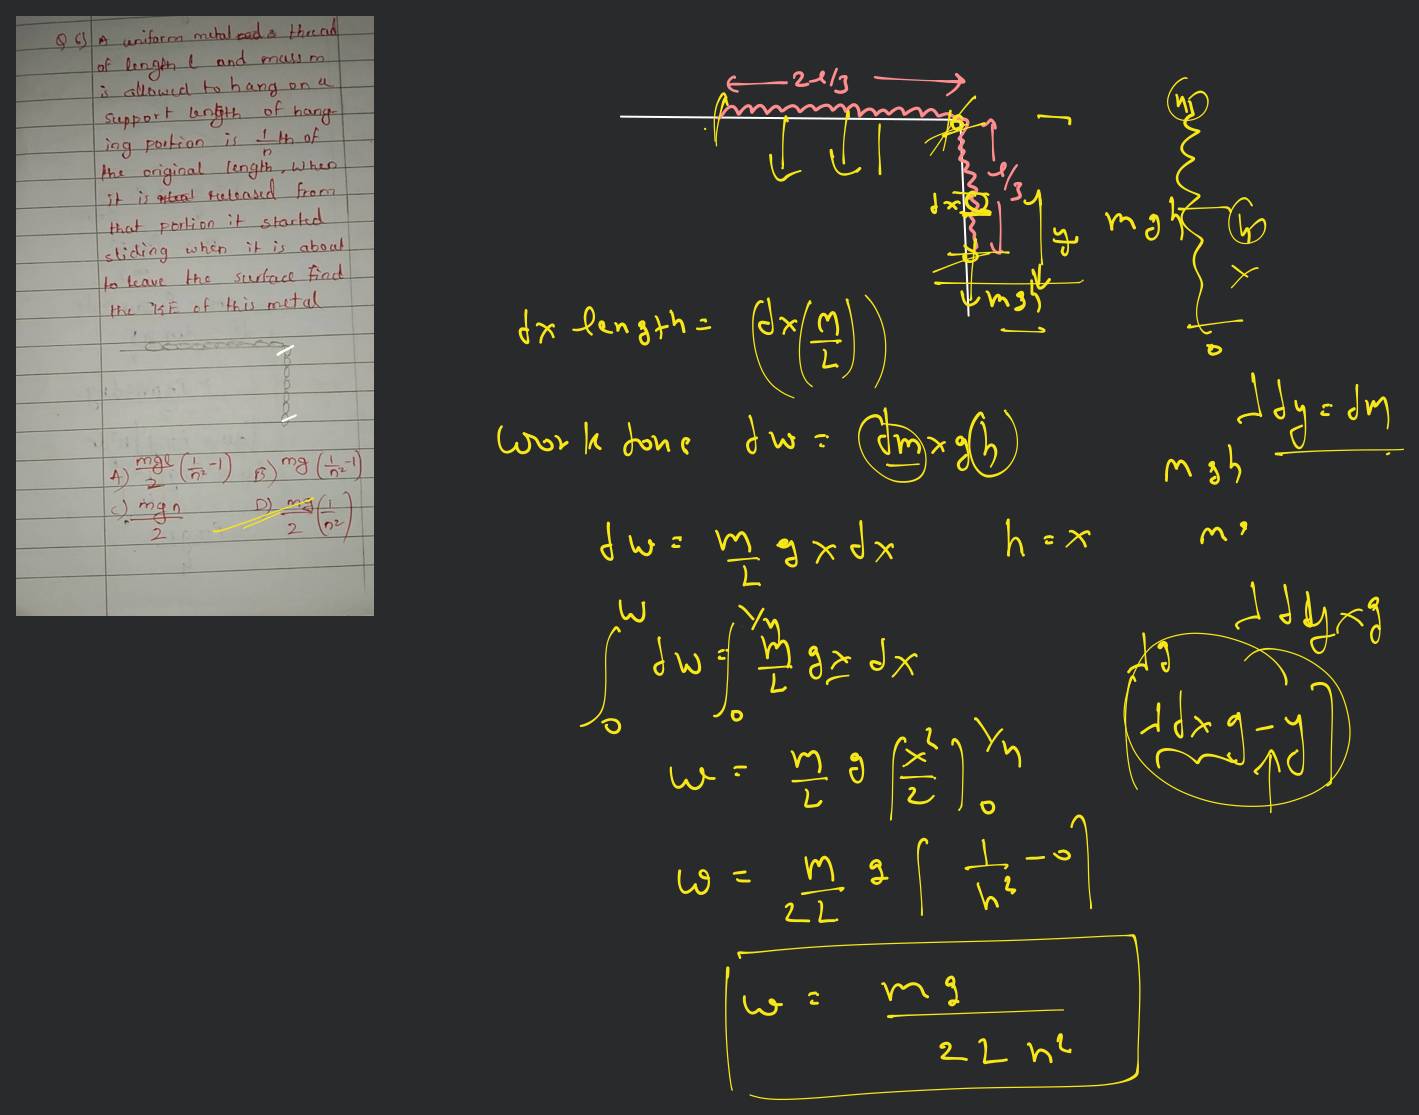 Q 6) A uniform metal a thread
of length l and mass m
is allowed to hang on a
support length of hang-
ing portion is 1/n th of
the original length, when
it is released from
that portion it started
sliding when it is about
to leave the surface find
the KE of this metal
A) mgl/2 (1/n² -1) B) mg (1/n² -1)
C) mgn/2 D) mg/2 (1/n²)
2l/3
l/3
dx
y
mgh
h
h
mgh
x
0
dx length = (dx(m/L))
λdy = dm
work done dw = dm x g(h)
mgh
dw = m/L g x dx h = x
∫₀^W dw = ∫₀^1/n m/L gx dx
λdxg - y
w = m/L g [x²/2]₀^1/n
w = m/2L g [1/n² - 0]
w = mg/2Ln²